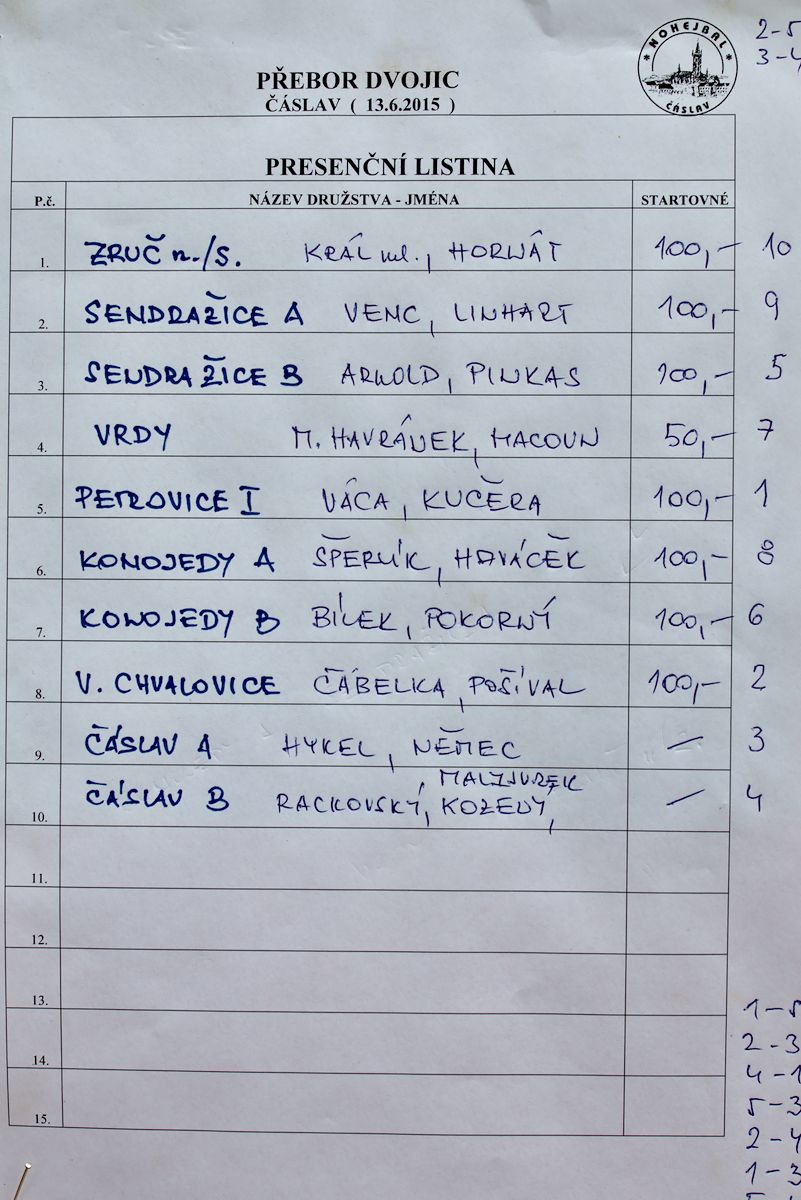 NOHEJBAL
ČÁSLAV
2-5
3-4
PŘEBOR DVOJIC
ČÁSLAV ( 13.6.2015 )
PRESENČNÍ LISTINA
P.č. NÁZEV DRUŽSTVA - JMÉNA STARTOVNÉ
1. ZRUČ n./S. KRÁL ml., HORVÁT 100,- 10
2. SENDRAŽICE A VENC, LINHART 100,- 9
3. SENDRAŽICE B ARNOLD, PINKAS 100,- 5
4. VRDY M. HAVRÁNEK, MACOUN 50,- 7
5. PETROVICE I VÁCA, KUČERA 100,- 1
6. KONOJEDY A ŠPERLÍK, HAVÁČEK 100,- 8
7. KONOJEDY B BÍLEK, POKORNÝ 100,- 6
8. V. CHVALOVICE ČÁBELKA, POŠÍVAL 100,- 2
9. ČÁSLAV A HYKEL, NĚMEC - 3
10. ČÁSLAV B RACKOVSKÝ, KOZEDÝ, - 4
11.
12.
13.
14.
15.
1-5
2-3
4-1
5-3
2-4
1-3